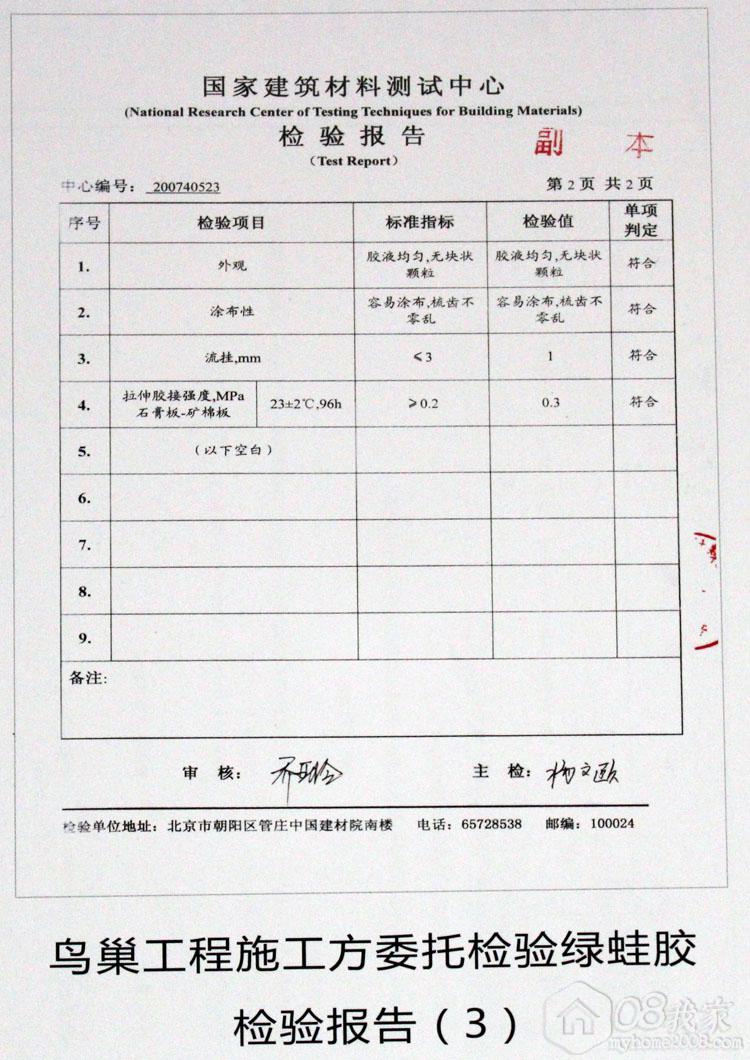 国家建筑材料测试中心
(National Research Center of Testing Techniques for Building Materials)
检验报告
(Test Report)
副本
中心编号: 200740523
第2页 共2页
序号 检验项目 标准指标 检验值 单项判定
1. 外观 胶液均匀,无块状颗粒 胶液均匀,无块状颗粒 符合
2. 涂布性 容易涂布,梳齿不零乱 容易涂布,梳齿不零乱 符合
3. 流挂,mm ≤3 1 符合
4. 拉伸胶接强度,MPa 石膏板-矿棉板 23±2℃,96h ≥0.2 0.3 符合
5. (以下空白)
6.
7.
8.
9.
备注:
审核: 主检:
检验单位地址: 北京市朝阳区管庄中国建材院南楼 电话: 65728538 邮编: 100024
鸟巢工程施工方委托检验绿蛙胶
检验报告(3)
08我家
myhome2008.com